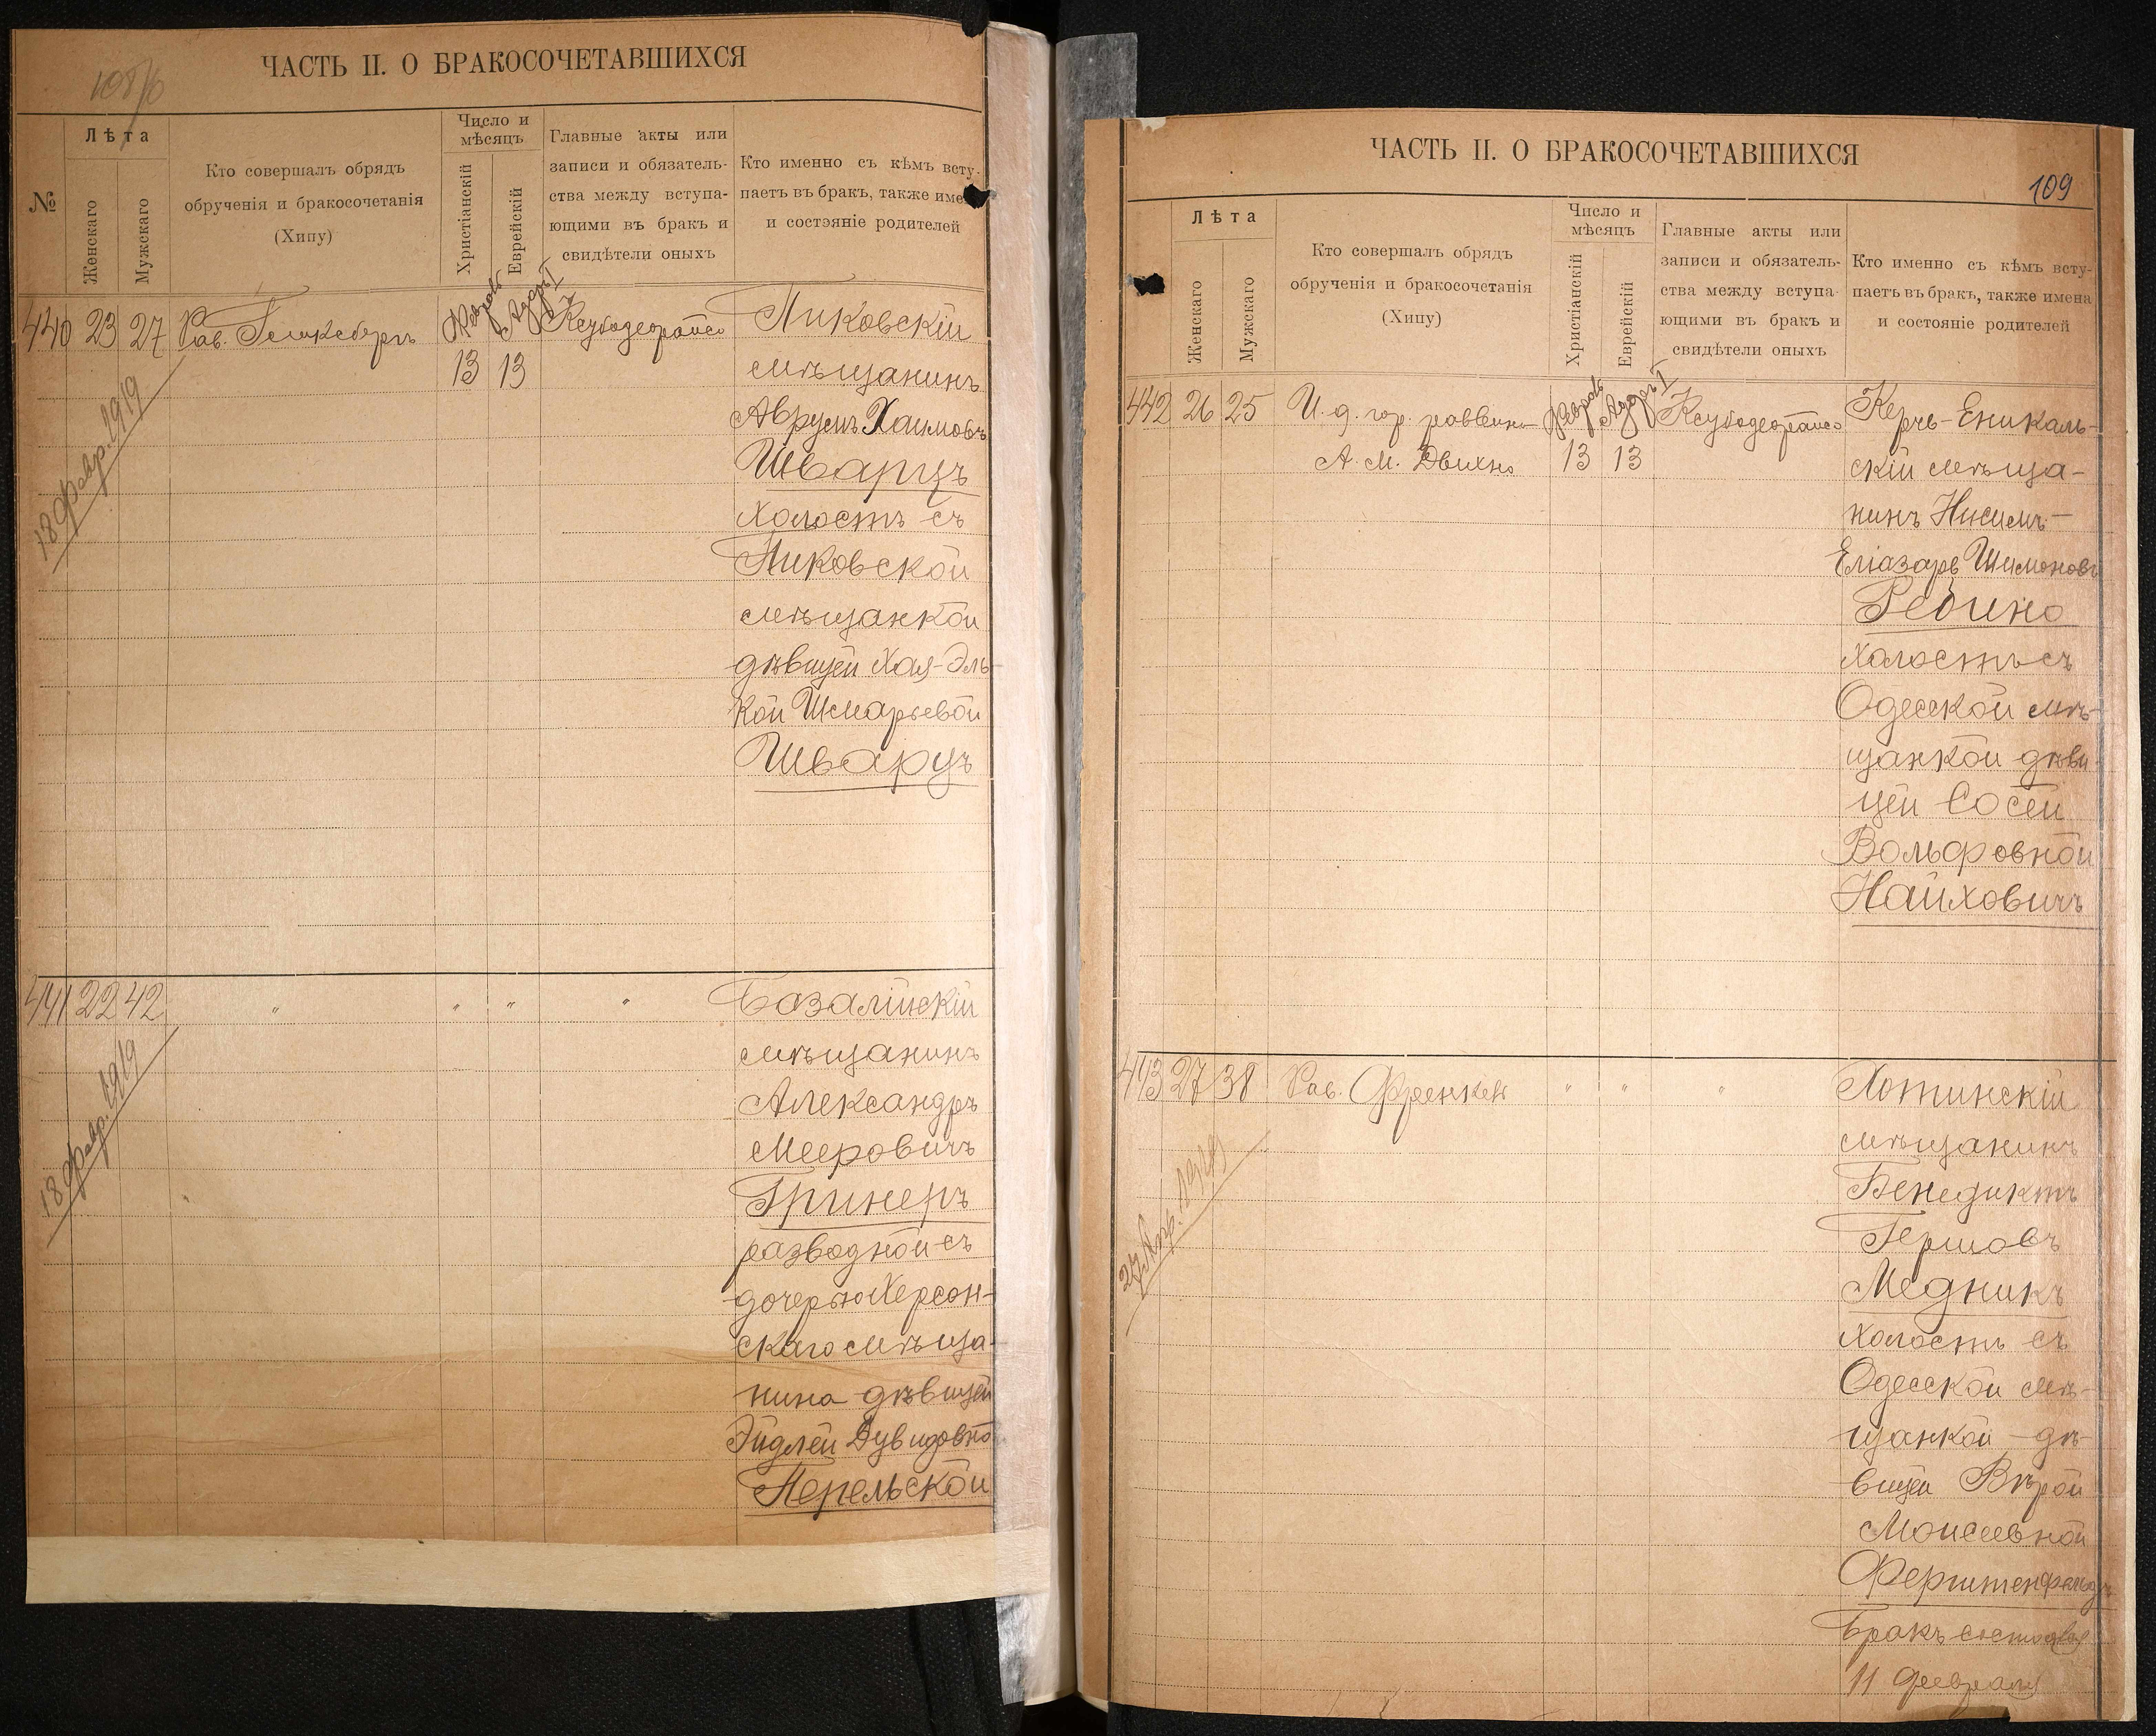 ЧАСТЬ II. О БРАКОСОЧЕТАВШИХСЯ
№
Лѣта
Женскаго
Мужскаго
Кто совершалъ обрядъ
обрученія и бракосочетанія
(Хипу)
Число и
мѣсяцъ
Христіанскій
Еврейскій
Главные акты или
записи и обязатель-
ства между вступа-
ющими въ бракъ и
свидѣтели оныхъ
Кто именно съ кѣмъ всту-
паетъ въ бракъ, также име
и состояніе родителей
440 23 27
Рав.
Февраль
13
Адаръ I
13
Пиковскій
мѣщанинъ
Аврумъ Хаимовъ
Шварцъ
холостъ съ
Пиковской
мѣщанкой
дѣвицей Хая-Эль-
кой Шмарьевой
Шварцъ
18 февр. 1919
441 22 42 " " " "
Базалійскій
мѣщанинъ
Александръ
Мееровичъ
Гринеръ
разводной съ
дочерью Херсон-
скаго мѣща-
нина дѣвицей
Эйдлей Дувидовно
Перельской
18 февр. 1919
ЧАСТЬ II. О БРАКОСОЧЕТАВШИХСЯ
109
Лѣта
Женскаго
Мужскаго
Кто совершалъ обрядъ
обрученія и бракосочетанія
(Хипу)
Число и
мѣсяцъ
Христіанскій
Еврейскій
Главные акты или
записи и обязатель-
ства между вступа-
ющими въ бракъ и
свидѣтели оныхъ
Кто именно съ кѣмъ всту-
паетъ въ бракъ, также имена
и состояніе родителей
442 26 25
И. д. гор. раввина
А. М.
Февраль
13
Адаръ I
13
Керчь-Еникаль-
скій мѣща-
нинъ Нисимъ-
Еліазаръ Шимоновъ
Ребино
холостъ съ
Одесской мѣ-
щанкой дѣви-
цей Сосей
Вольфовной
Найховичъ
443 27 38
Рав. Френкель
" " "
Хотинскій
мѣщанинъ
Бенедиктъ
Гершовъ
Медникъ
холостъ съ
Одесской мѣ-
щанкой дѣ-
вицей Вѣрой
Моисеевной
Ферштенфельдъ
Бракъ состоялся
11 февраля